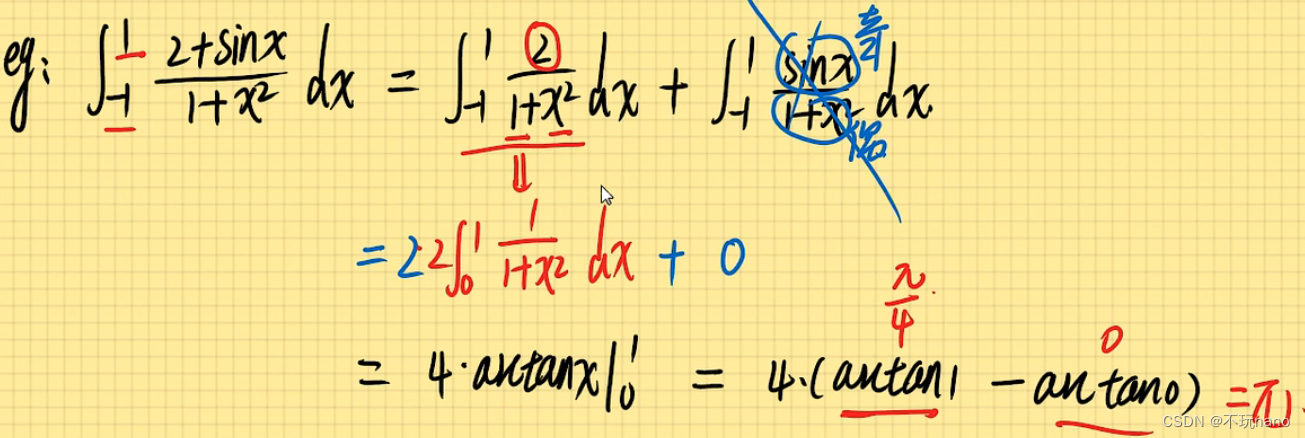 eg: ∫₋₁¹ (2+sinx)/(1+x²) dx = ∫₋₁¹ 2/(1+x²) dx + ∫₋₁¹ sinx/(1+x²) dx. 奇 偶
= 2·2∫₀¹ 1/(1+x²) dx + 0
π/4 0
= 4·arctanx|₀¹ = 4·(arctan1 − arctan0) = π.
CSDN @不玩nano